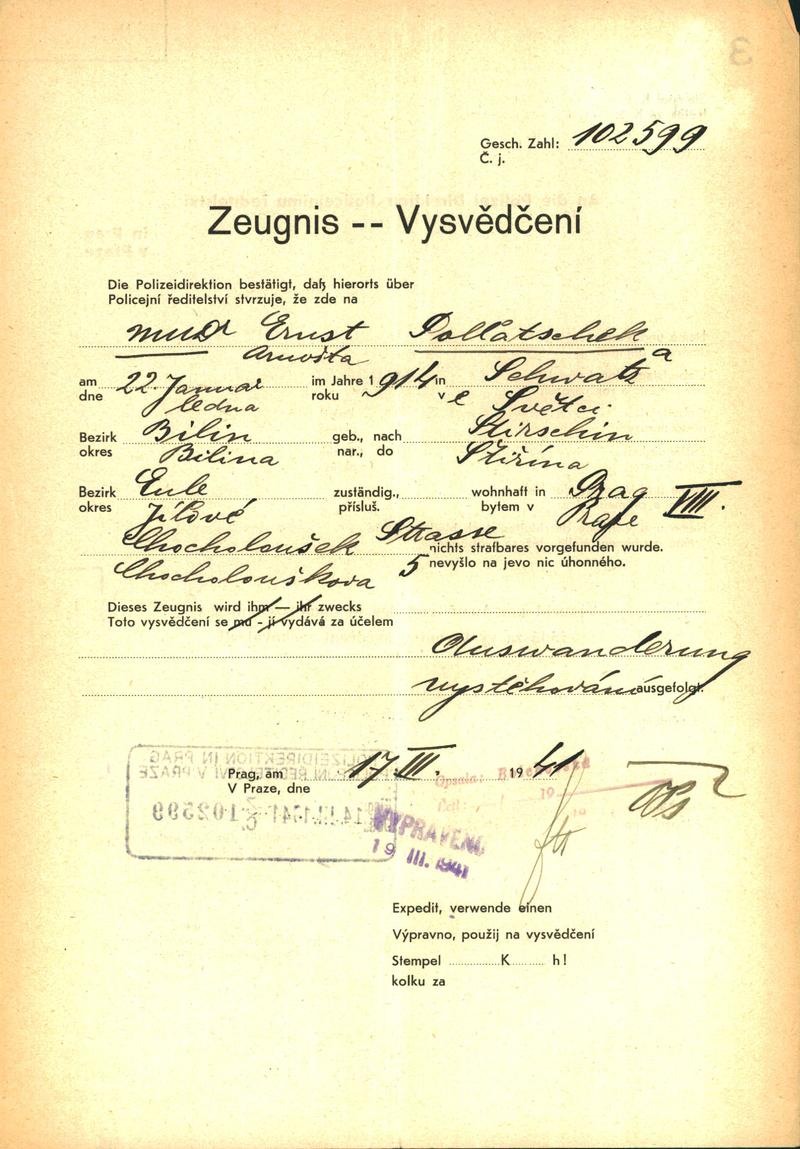 Gesch. Zahl: 102599
Č. j.
Zeugnis -- Vysvědčení
Die Polizeidirektion bestätigt, daß hierorts über
Policejní ředitelství stvrzuje, že zde na
MUDr Ernst Pollatschek
Arnošta a
am 22. Januar im Jahre 1914 in Schwatz
dne ledna roku v e Světci
Bezirk Bilin geb., nach Stirschin
okres Bilina nar., do Štiřína
Bezirk Eule zuständig., wohnhaft in Prag VIII.
okres Jílové přísluš. bytem v Praze
Chocholoušek Strasse nichts strafbares vorgefunden wurde.
Chocholouškova 5 nevyšlo na jevo nic úhonného.
Dieses Zeugnis wird ihm — ihr zwecks
Toto vysvědčení se mu - jí vydává za účelem
Auswanderung
vystěhování ausgefolgt.
POLIZEIDIREKTION IN PRAG
ŘEDITELSTVÍ V PRAZE
Prag, am 17. III. 1941
V Praze, dne
Opsala:
14.III.1941 102599
VYPRAVENO
19 III. 1941
Expedit, verwende einen
Výpravno, použij na vysvědčení
Stempel K h!
kolku za
3